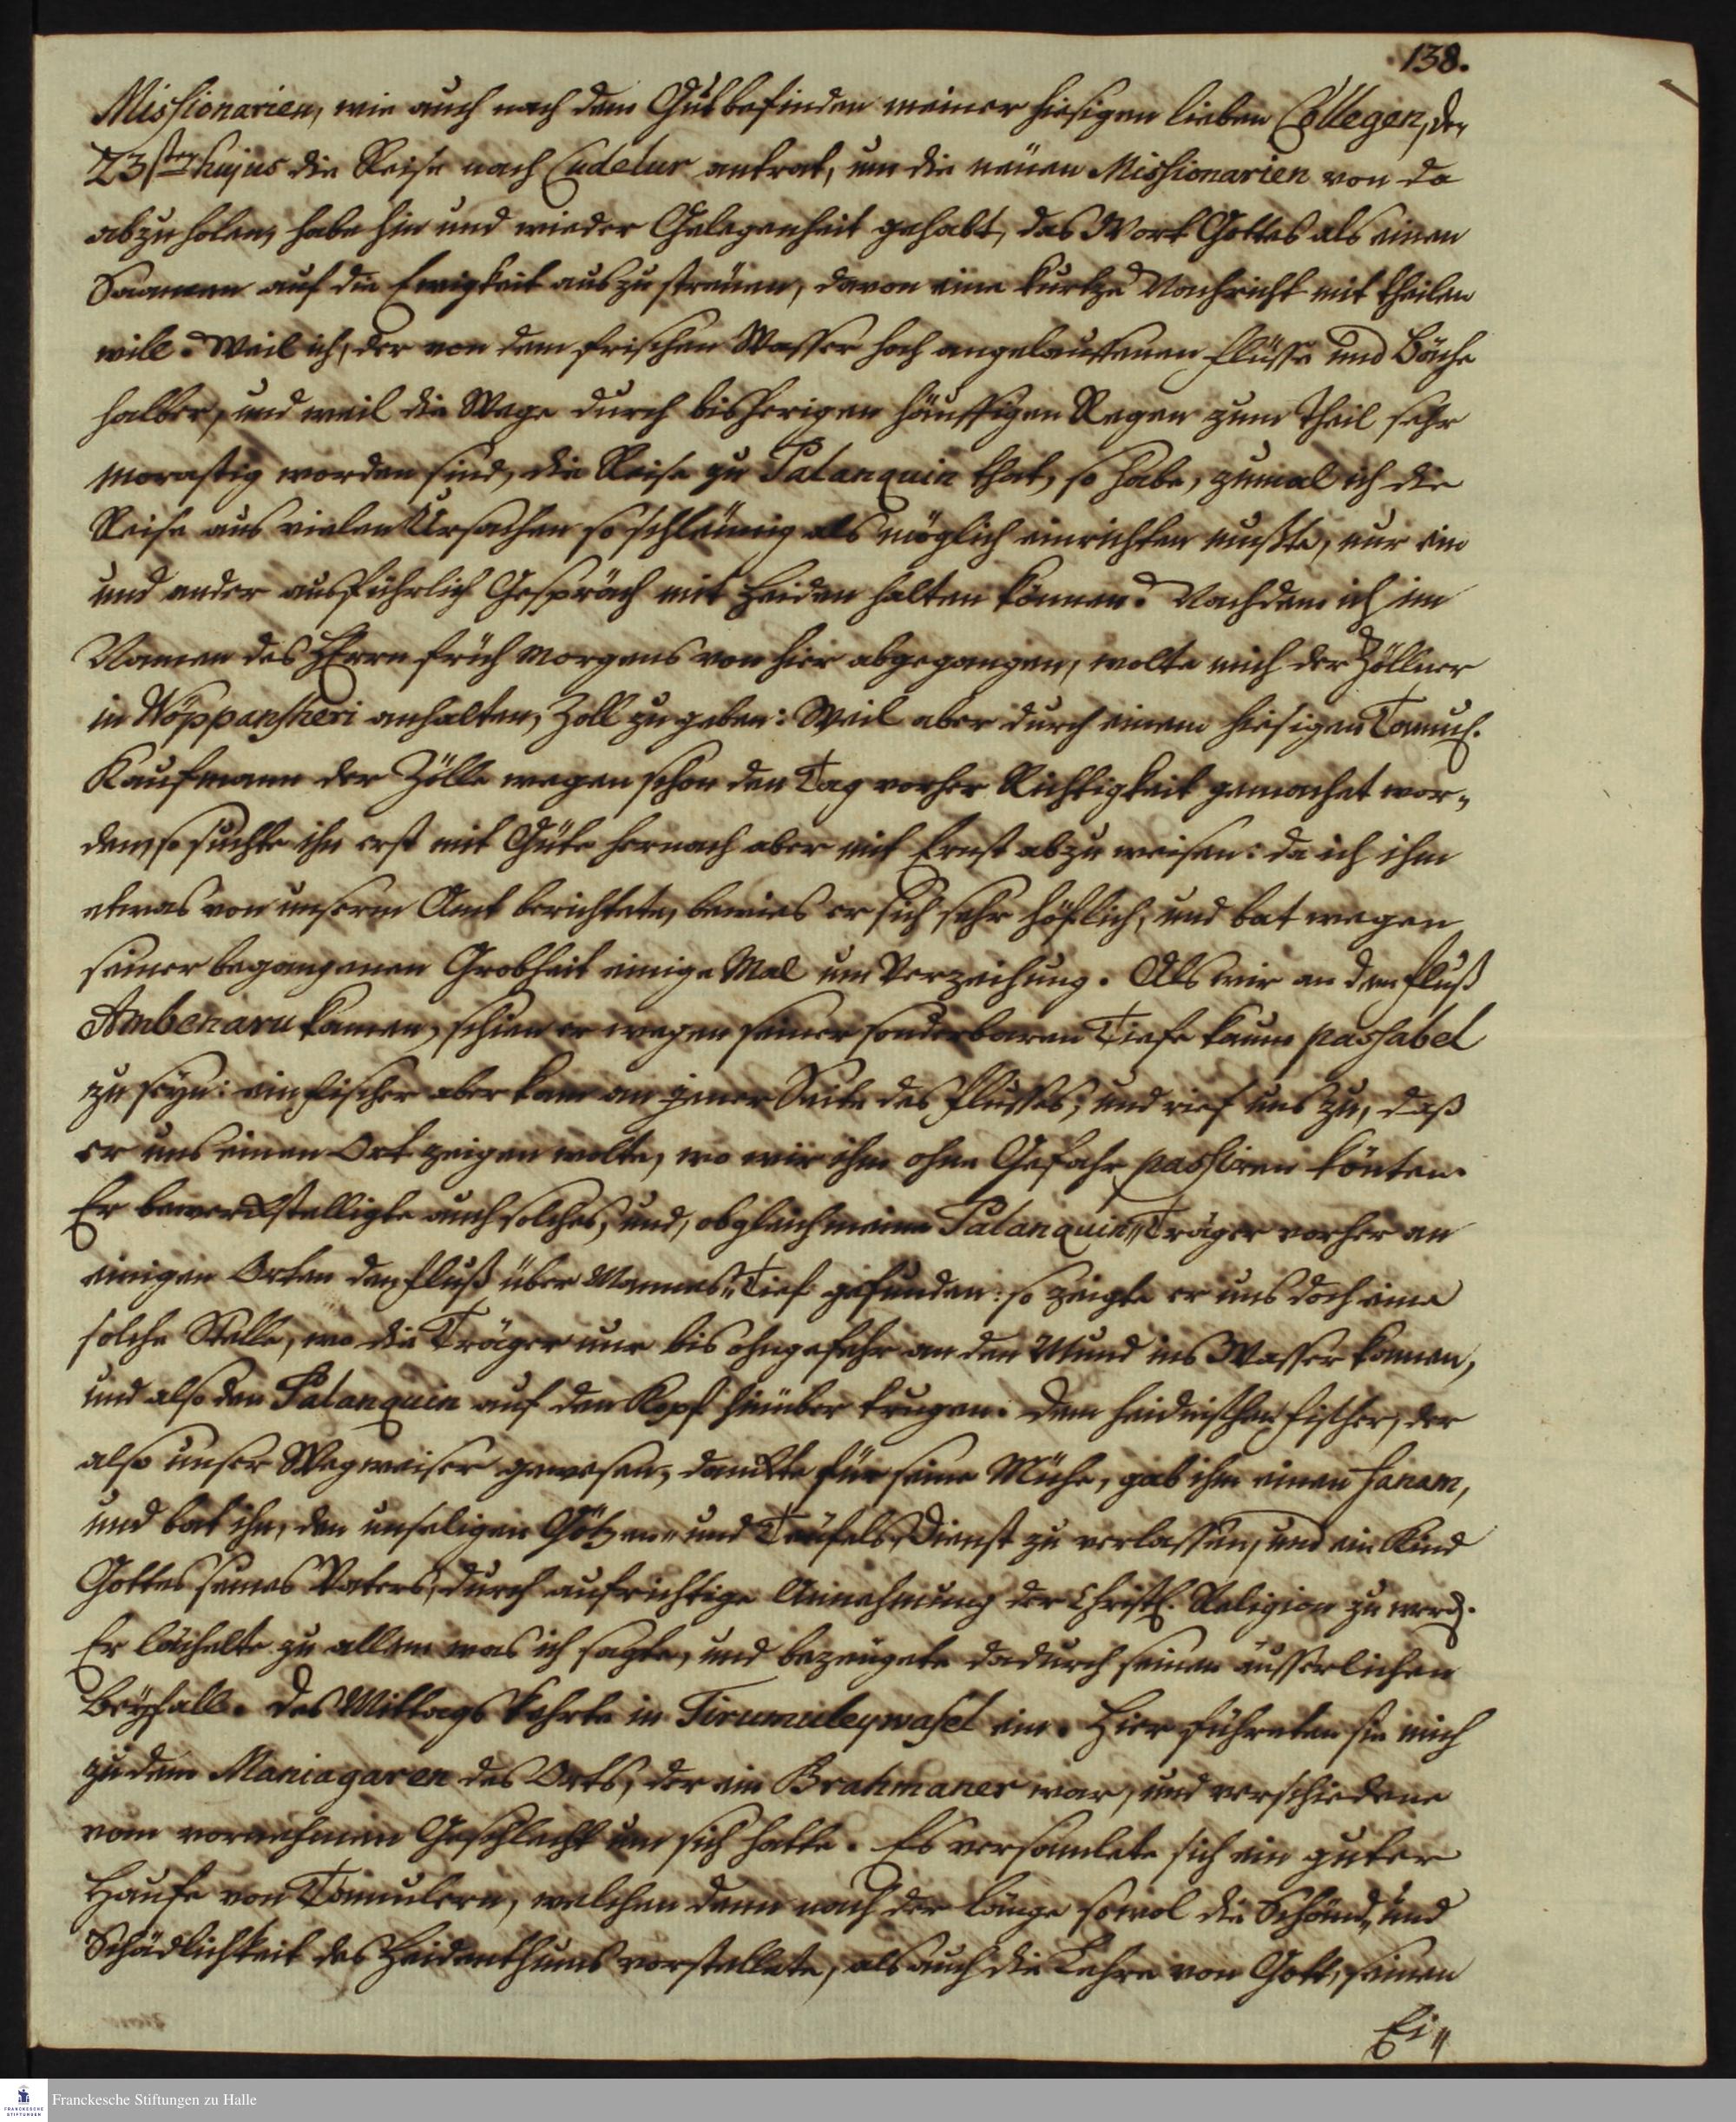 138.
Missionarien, wie auch nach dem Gutbefinden meiner hiesigen lieben Collegen, den
23sten hujus die Reise nach Cudelur antrat, um die neuen Missionarien von da
abzuholen, habe hin und wieder Gelegenheit gehabt, das Wort Gottes als einen
Saamen auf die Ewigkeit auszustreuen, davon eine kurtze Nachricht mit theilen
will. Weil ich, der von dem frischen Wasser hoch angelauffenen Flüsse und Bäche
halber, und weil die Wege durch bisherigen häuffigen Regen zum Theil sehr
morastig worden sind, die Reise zu Palanquin that, so habe, zumal ich die
Reise aus vielen Ursachen so schleunig als möglich einrichten mußte, nur ein
und ander ausführlich Gespräch mit Heiden halten können. Nachdem ich im
Namen des HErrn früh morgens von hier abgegangen, wolte mich der Zöllner
in Wöppanscheri anhalten, Zoll zu geben: Weil aber durch einem hiesigen Tamul.
Kaufmann der Zölle wegen schon den Tag vorher Richtigkeit gemachet wor-
den, so suchte ihn erst mit Güte hernach aber mit Ernst abzuweisen: da ich ihm
etwas von unserm Amt berichtete, bewies er sich sehr höflich, und bat wegen
seiner begangenen Grobheit einige Mal um Verzeihung. Als wir an den Fluß
Ambenaru kamen, schien er wegen seiner sonderbaren Tiefe kaum passabel
zu seyn: ein Fischer aber kam an jener Seite des Flusses, und rief uns zu, daß
er uns einen Ort zeigen wolte, wo wir ihn ohne Gefahr passiren könten.
Er bewerckstelligte auch solches, und, obgleich meine Palanquin-Träger vorher an
einigen Orten den Fluß über Mannes-Tief gefunden: so zeigte er uns doch eine
solche Stelle, wo die Träger nur bis ohngefehr an den Mund ins Wasser kamen,
und also den Palanquin auf den Kopf hinüber trugen. Dem heidnischen Fischer, der
also unser Wegweiser gewesen, danckte für seine Mühe, gab ihm einen Fanam,
und bat ihn, den unseligen Götzen- und Teufels-Dienst zu verlassen, und ein Kind
Gottes seines Vaters, durch aufrichtige Annehmung der Christl. Religion zu werd.
Er lächelte zu allem was ich sagte, und bezeugete dadurch seinen äusserlichen
Beyfall. Des Mittags kehrte in Tirumuleywasel ein. Hier führeten sie mich
zu dem Maniagaren des Orts, der ein Brahmaner war, und verschiedene
vom vornehmen Geschlecht um sich hatte. Es versamlete sich ein guter
Haufe von Tamulern, welchen denn nach der Länge sowol die Schänd- und
Schädlichkeit des Heidenthums vorstellete, als auch die Lehre von Gott, seinen
Ei-
Franckesche Stiftungen zu Halle
FRANCKESCHE
STIFTUNGEN